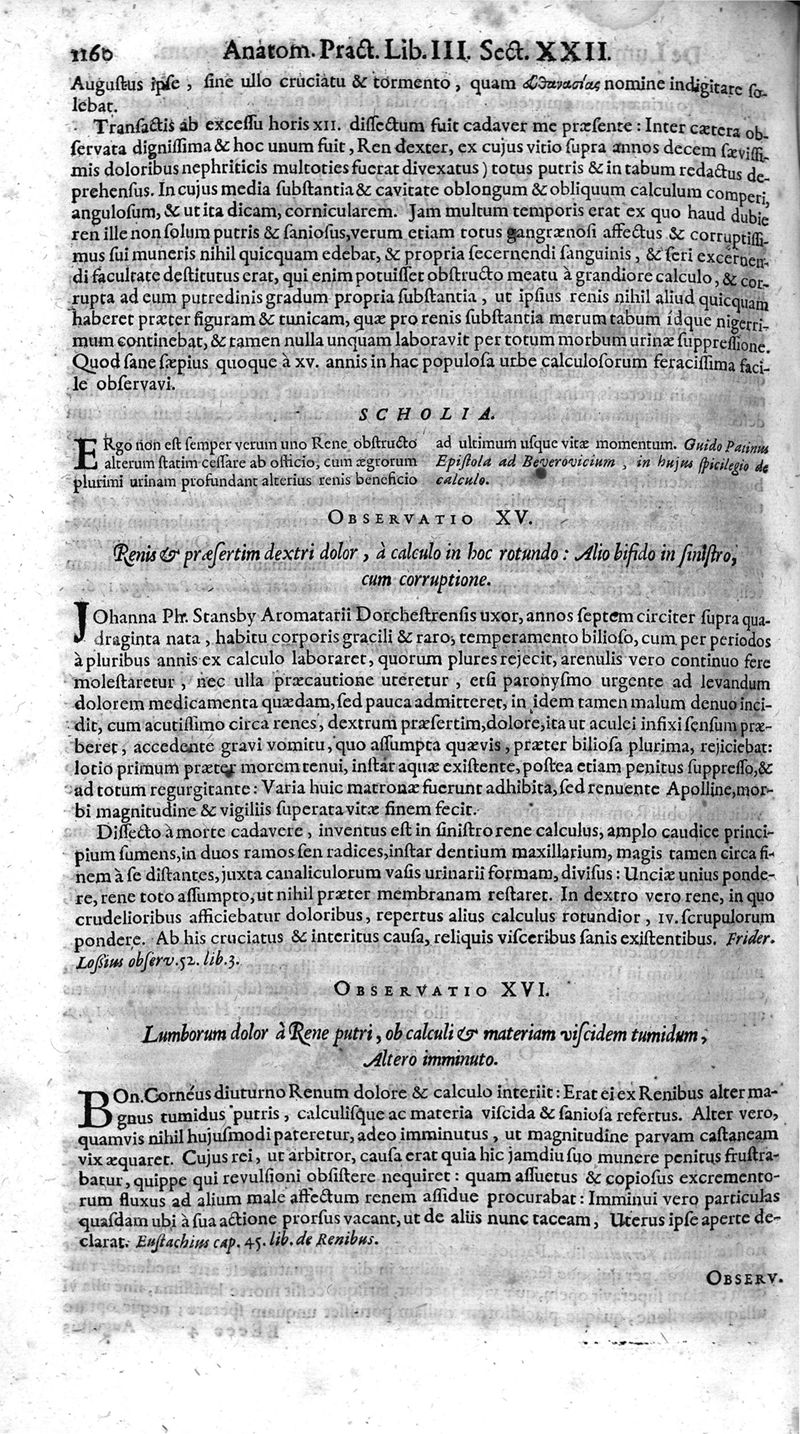 1160 Anatom. Pract. Lib. III. Sect. XXII.
Augustus ipse, sine ullo cruciatu & tormento, quam nomine indigitare so-
lebat.
Transactis ab excessu horis XII. dissectum fuit cadaver me præsente: Inter cætera ob-
servata dignissima & hoc unum fuit, Ren dexter, ex cujus vitio supra annos decem sævissi-
mis doloribus nephriticis multoties fuerat divexatus) totus putris & in tabum redactus de-
prehensus. In cujus media substantia & cavitate oblongum & obliquum calculum comperi,
angulosum, & ut ita dicam, cornicularem. Jam multum temporis erat ex quo haud dubie
ren ille non solum putris & saniosus, verum etiam totus gangrænosi affectus & corruptissi-
mus sui muneris nihil quicquam edebat, & propria secernendi sanguinis, & seri excernen-
di facultate destitutus erat, qui enim potuisset obstructo meatu à grandiore calculo, & cor-
rupta ad eum putredinis gradum propria substantia, ut ipsius renis nihil aliud quicquam
haberet præter figuram & tunicam, quæ pro renis substantia merum tabum idque nigerri-
mum continebat, & tamen nulla unquam laboravit per totum morbum urinæ suppressione.
Quod sane sæpius quoque à xv. annis in hac populosa urbe calculosorum feracissima faci-
le observavi.
SCHOLIA.
ERgo non est semper verum uno Rene obstructo
alterum statim cessare ab officio, cum ægrorum
plurimi urinam profundant alterius renis beneficio
ad ultimum usque vitæ momentum. Guido Patinus
Epistola ad Beverovicium, in hujus spicilegio de
calculo.
OBSERVATIO XV.
Renis & præsertim dextri dolor, à calculo in hoc rotundo: Alio bifido in sinistro,
cum corruptione.
JOhanna Phr. Stansby Aromatarii Dorchestrensis uxor, annos septem circiter supra qua-
draginta nata, habitu corporis gracili & raro, temperamento bilioso, cum per periodos
à pluribus annis ex calculo laboraret, quorum plures rejecit, arenulis vero continuo fere
molestaretur, nec ulla præcautione uteretur, etsi paroxysmo urgente ad levandum
dolorem medicamenta quædam, sed pauca admitteret, in idem tamen malum denuo inci-
dit, cum acutissimo circa renes, dextrum præsertim, dolore, ita ut aculei infixi sensum præ-
beret, accedente gravi vomitu, quo assumpta quævis, præter biliosa plurima, rejiciebat:
lotio primum præter morem tenui, instar aquæ existente, postea etiam penitus suppresso, &
ad totum regurgitante: Varia huic matronæ fuerunt adhibita, sed renuente Apolline, mor-
bi magnitudine & vigiliis superata vitæ finem fecit.
Dissecto à morte cadavere, inventus est in sinistro rene calculus, amplo caudice princi-
pium sumens, in duos ramos sen radices, instar dentium maxillarium, magis tamen circa fi-
nem à se distantes, juxta canaliculorum vasis urinarii formam, divisus: Unciæ unius ponde-
re, rene toto assumpto, ut nihil præter membranam restaret. In dextro vero rene, in quo
crudelioribus afficiebatur doloribus, repertus alius calculus rotundior, IV. scrupulorum
pondere. Ab his cruciatus & interitus causa, reliquis visceribus sanis existentibus. Frider.
Lossius observ. 52. lib. 3.
OBSERVATIO XVI.
Lumborum dolor à Rene putri, ob calculi & materiam viscidem tumidum,
Altero imminuto.
BOn. Cornéus diuturno Renum dolore & calculo interiit: Erat ei ex Renibus alter ma-
gnus tumidus putris, calculisque ac materia viscida & saniosa refertus. Alter vero,
quamvis nihil hujusmodi pateretur, adeo imminutus, ut magnitudine parvam castaneam
vix æquaret. Cujus rei, ut arbitror, causa erat quia hic jamdiu suo munere penitus frustra-
batur, quippe qui revulsioni obsistere nequiret: quam assuetus & copiosus excremento-
rum fluxus ad alium male affectum renem assidue procurabat: Imminui vero particulas
quasdam ubi à sua actione prorsus vacant, ut de aliis nunc taceam, Uterus ipse aperte de-
clarat. Eustachius cap. 45. lib. de Renibus.
OBSERV.